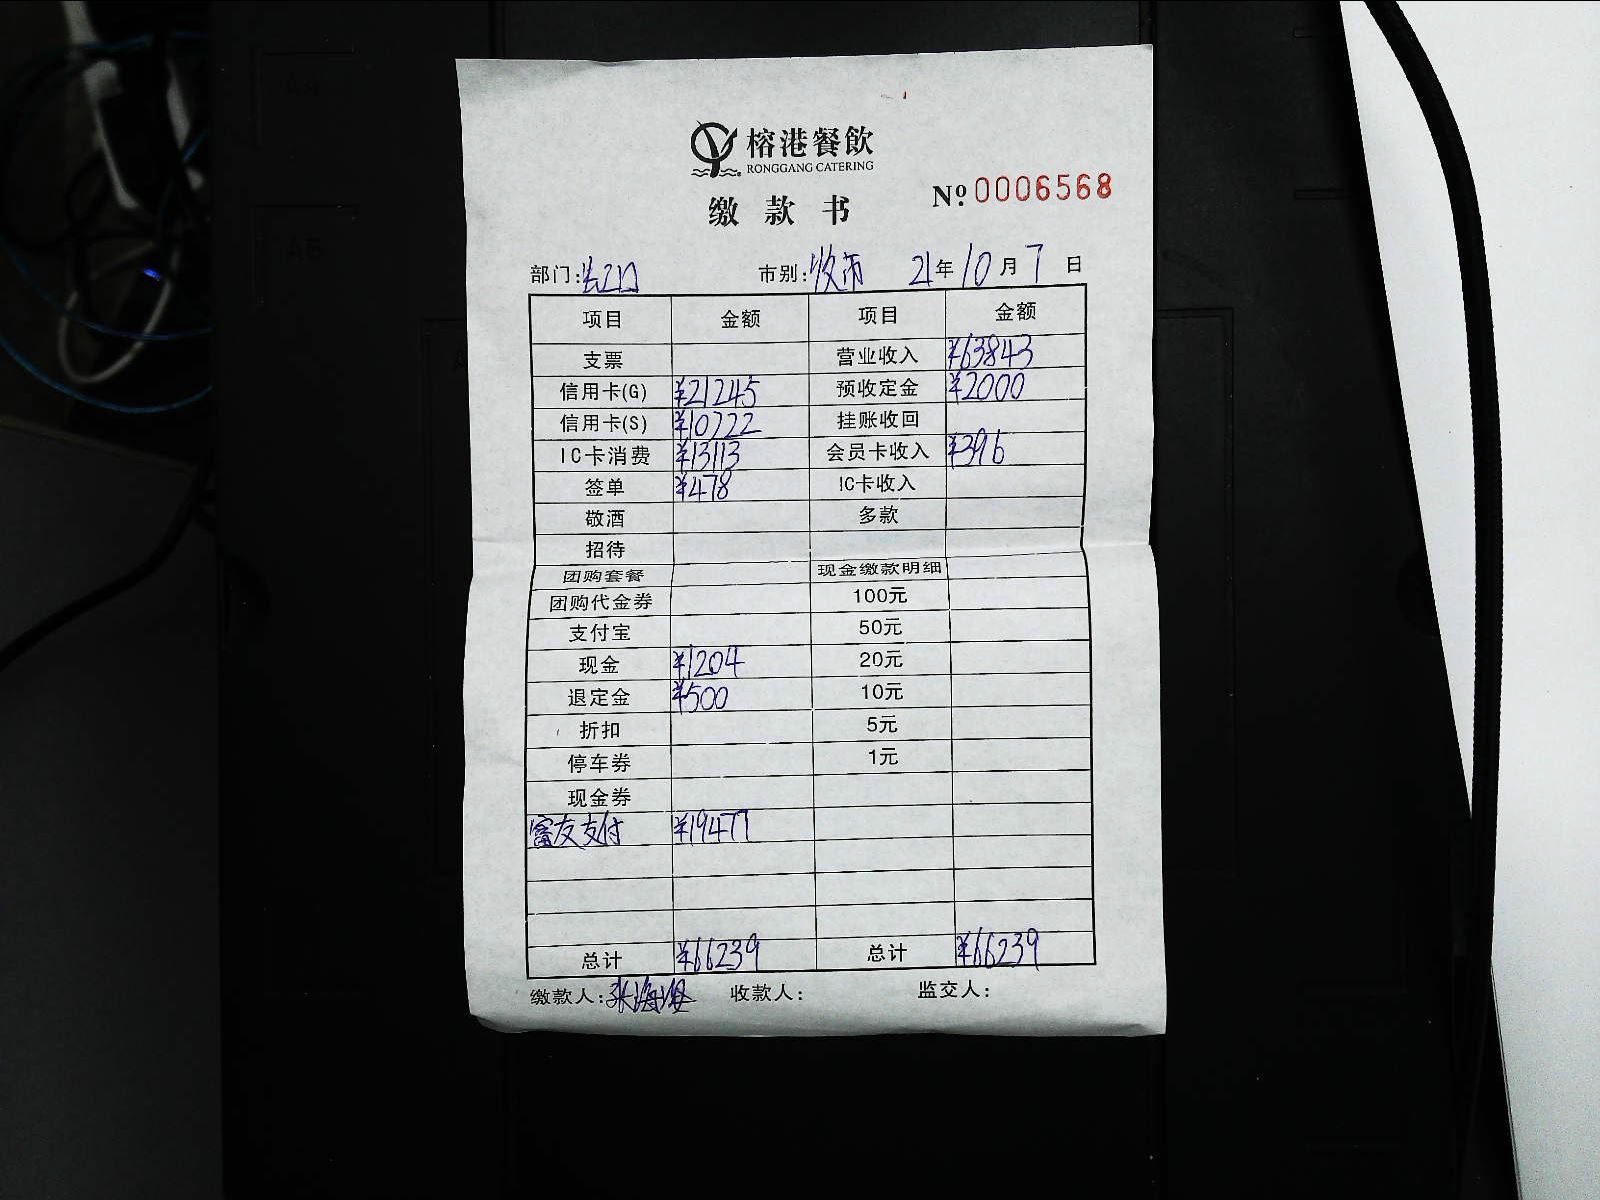 榕港餐飲
RONGGANG CATERING
缴款书
№ 0006568
部门: 市别:收市 21年10月7日
项目 金额 项目 金额
支票 营业收入 ¥63843
信用卡(G) ¥21245 预收定金 ¥2000
信用卡(S) ¥10222 挂账收回
IC卡消费 ¥13113 会员卡收入 ¥396
签单 ¥478 IC卡收入
敬酒 多款
招待
团购套餐 现金缴款明细
团购代金券 100元
支付宝 50元
现金 ¥1204 20元
退定金 ¥500 10元
折扣 5元
停车券 1元
现金券
富友支付 ¥19477
总计 ¥66239 总计 ¥66239
缴款人: 收款人: 监交人: